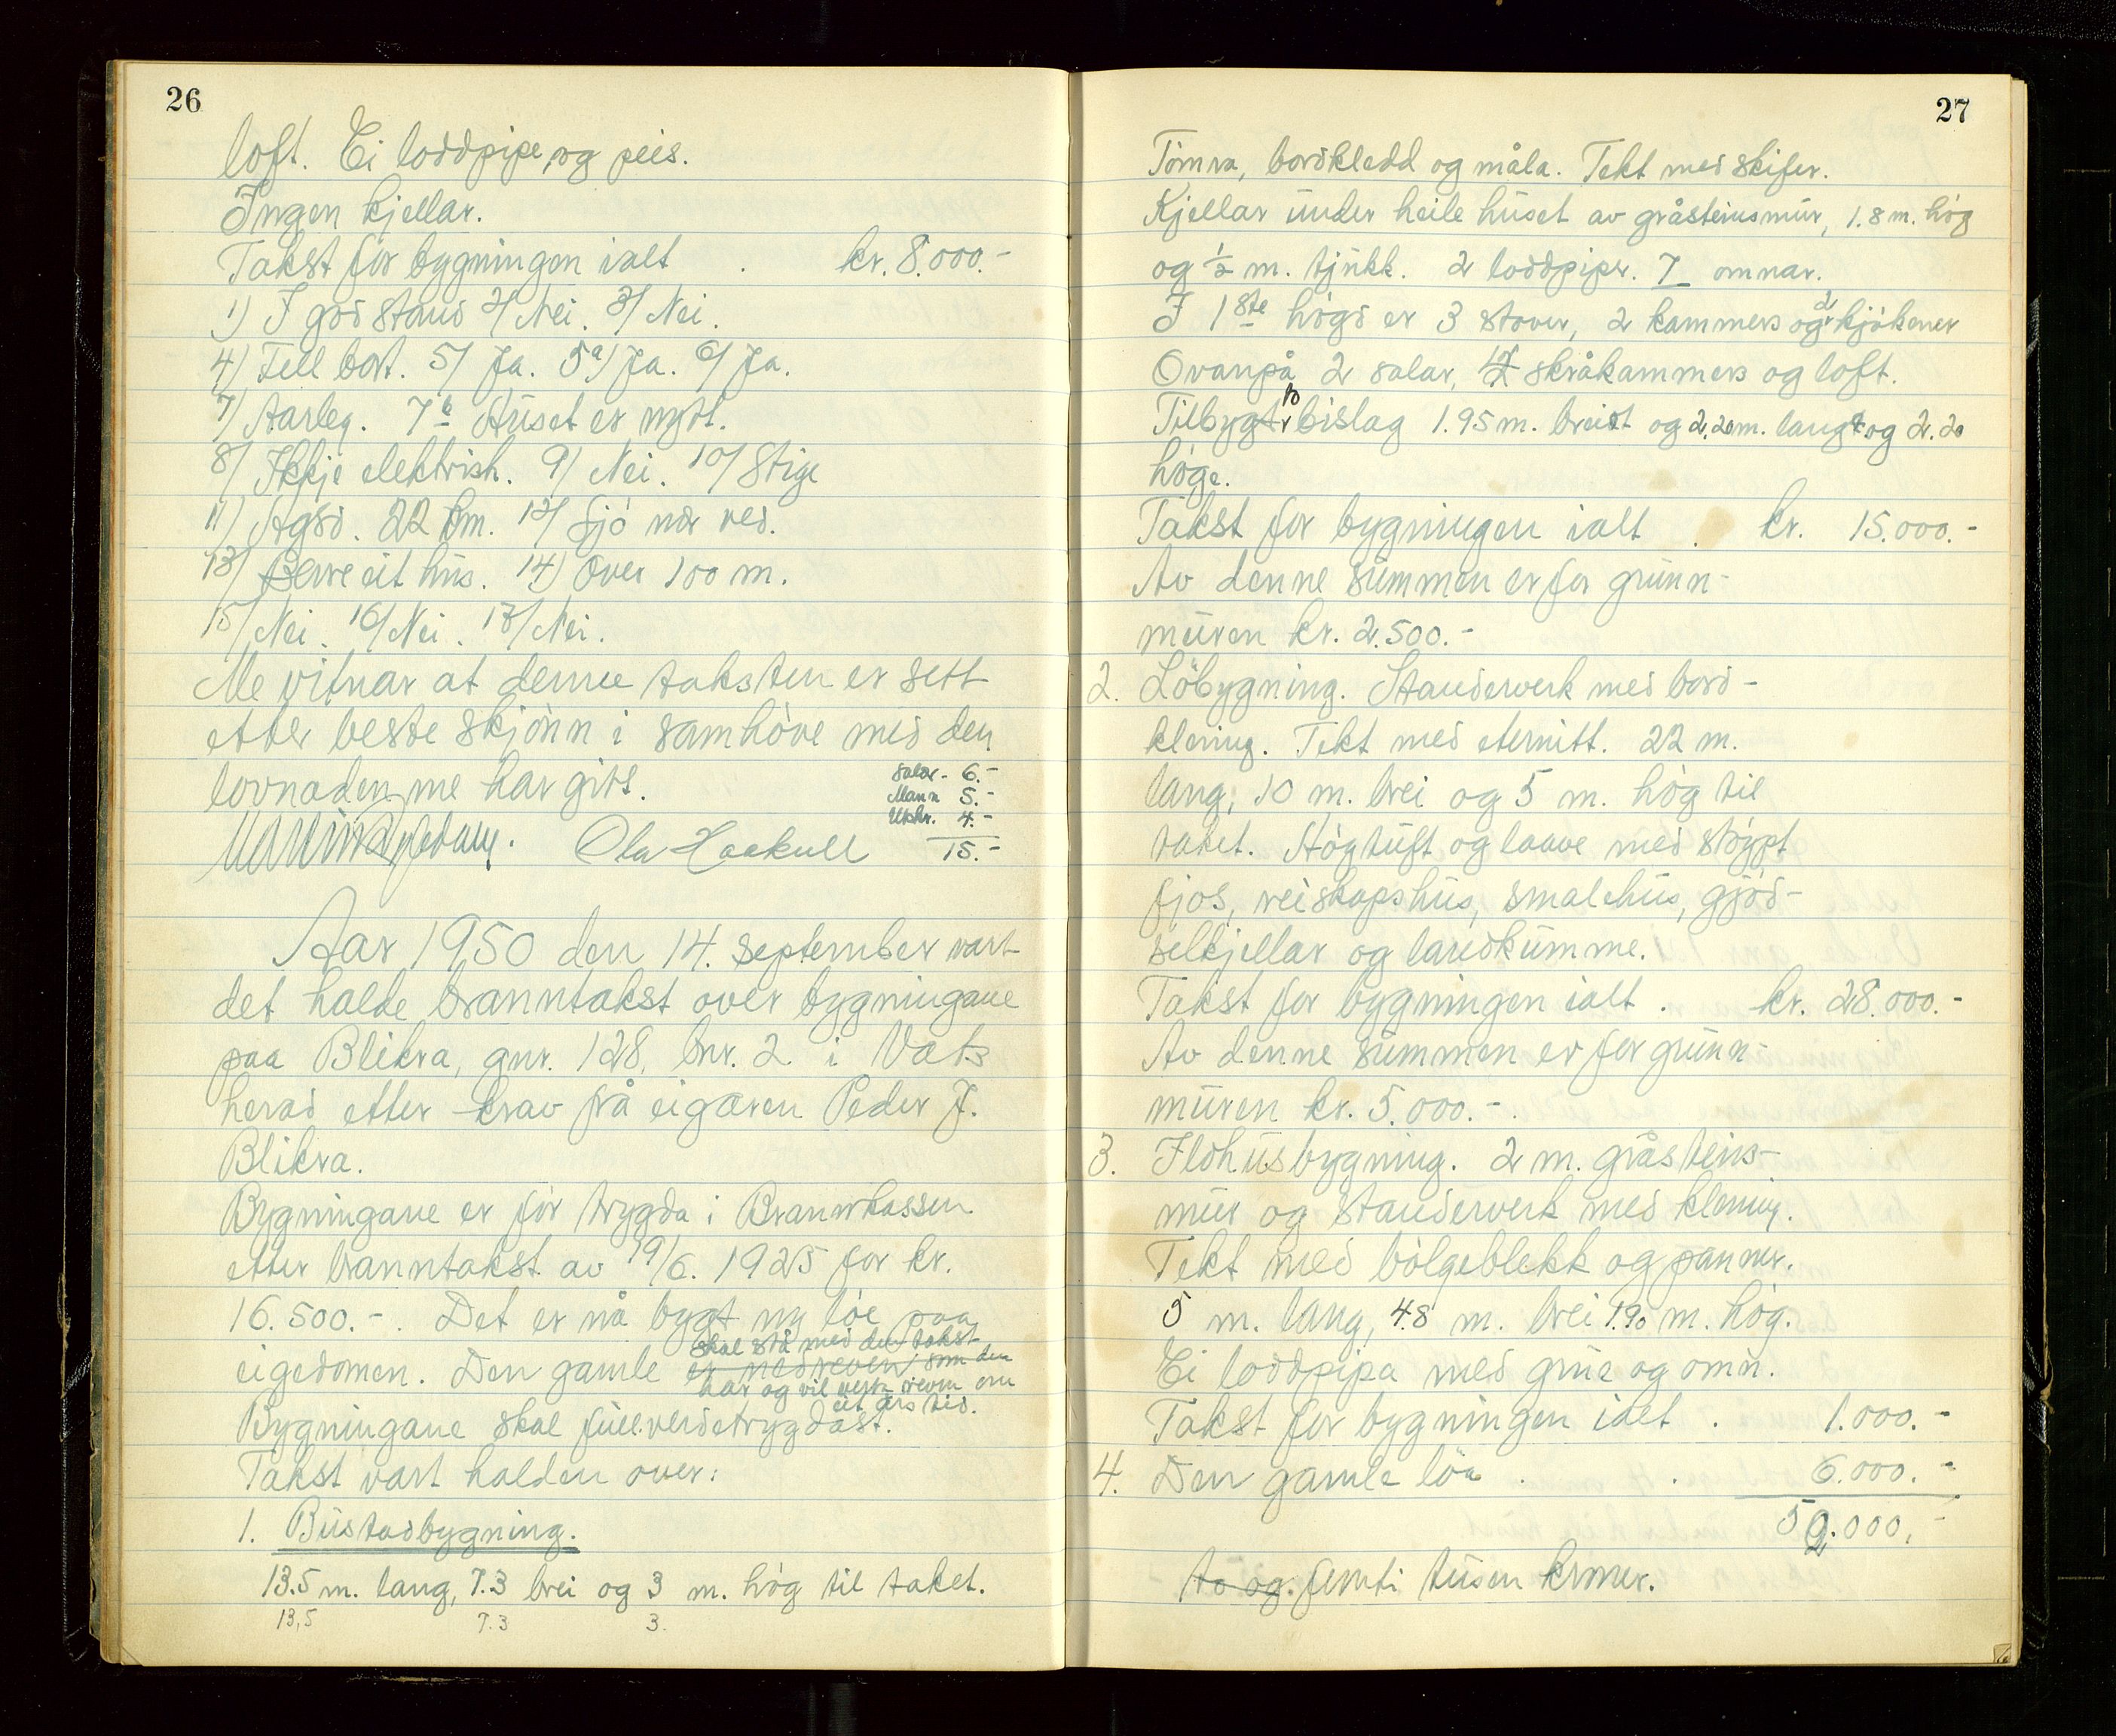 26
loft. Ei loddpipe og peis.
Ingen kjellar.
Takst for bygningen ialt . kr. 8.000.-
1) I god stand 2/ Nei. 3/ Nei.
4) Fell bort. 5/ Ja. 5a) Ja. 6/ Ja.
7/ Aarleg. 7b Huset er nytt.
8/ Ikkje elektrish. 9/ Nei. 10/ Stige
11) Ågsd. 22 km. 12/ Sjó nær ved.
13/ Berre eit hus. 14) Over 100 m.
15/ Nei. 16/ Nei. 17/ Nei.
Me vitnar at denne taksten er sett
etter beste skjónn i samhöve med den
lovnaden me har gitt.
Salar. 6.-
Mann 5.-
Utskr. 4.-
15.-
Ola
Aar 1950 den 14. september vart
det halde branntakst over bygningane
paa Blikra, gnr. 128, bnr. 2 i Vats
herad etter krav frå eigaren Peder J.
Blikra.
Bygningane er för trygda i Brannkassen
etter branntakst av 19/6. 1925 for kr.
16.500.-. Det er nå bygt ny lóe paa
skal stå med den takst
eigedomen. Den gamle er nedreven, som den
har og vil verta reven om
eit års tid.
Bygningane skal fullverdetrygdast.
Takst vart halden over:
1. Bustadbygning.
13.5 m. lang, 7.3 brei og 3 m. hóg til taket.
13,5 7.3 3.
27
Tömra, bordkledd og måla. Tekt med skifer.
Kjellar under heile huset av gråsteinsmur, 1.8 m. hóg
og 1/2 m. tjukk. 2 loddpiper. 7 omnar.
I 1ste högd er 3 stover, 2 kammers og 2 kjökener
Ovanpå 2 salar, skråkammers og loft.
Tilbygt bislag 1.95 m. breidt og 2,20 m. langt og 2.20
hóge.
Takst for bygningen ialt . kr. 15.000.-
Av denne summen er for grunn-
muren kr. 2.500.-
2. Löbygning. Standerverk med bord-
klening. Tekt med eternitt. 22 m.
lang, 10 m. brei og 5 m. hóg til
taket. Högtuft og laave med stöypt
fjos, reiskapshus, smalehus, gjöd-
selkjellar og landkumme.
Takst for bygningen ialt . kr. 28.000.-
Av denne summen er for grunn-
muren kr. 5.000.-.
3. Ildhusbygning. 2 m. gråsteins-
mur og standerverk med klening.
Tekt med bölgeblekk og panner.
5 m. lang, 4.8 m. brei 1.90 m. hóg.
Ei loddpipa med grue og omn.
Takst for bygningen ialt . 1.000.-
4. Den gamle löa . . 6.000.-
52.000,-
to og femti tusen kroner.